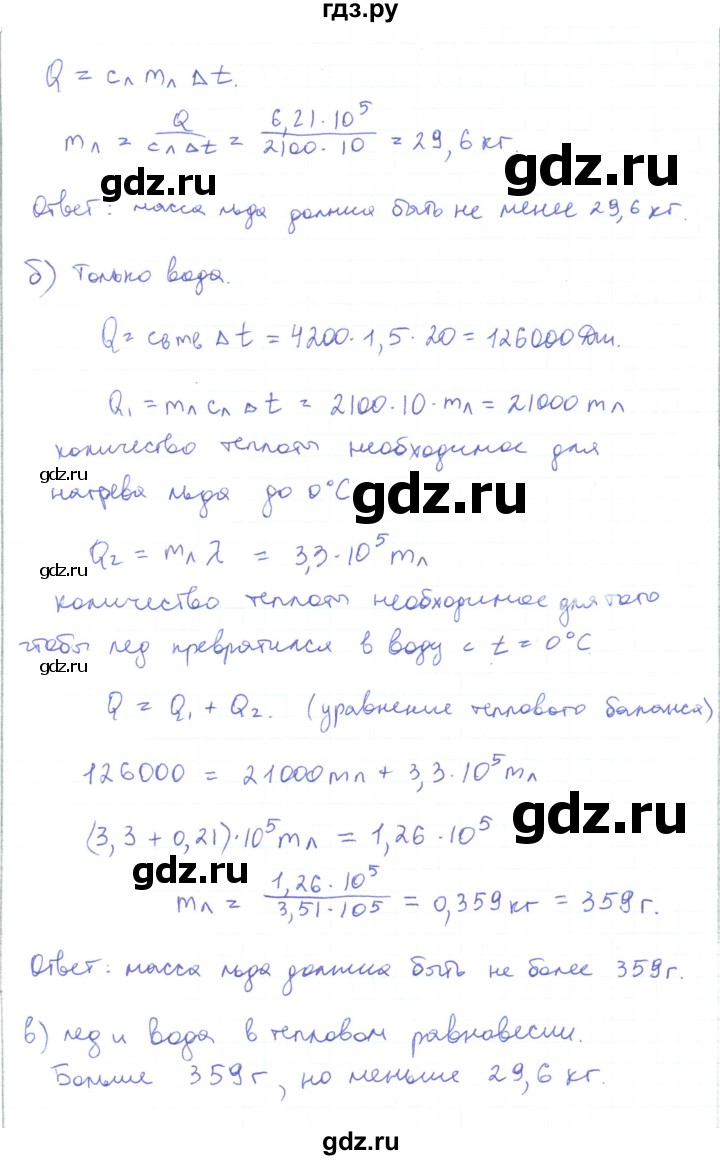 гдз.ру
Q = cл mл Δt.
mл = Q / cл Δt = 6,21·10⁵ / 2100·10 = 29,6 кг.
gdz.ru
gdz.ru
Ответ: масса льда должна быть не менее 29,6 кг.
б) Только вода.
Q = cв mв Δt = 4200·1,5·20 = 126000 Дж.
Q₁ = mл cл Δt = 2100·10·mл = 21000 mл
количество теплоты необходимое для
gdz.ru
нагрева льда до 0°C
gdz.ru
Q₂ = mл λ = 3,3·10⁵ mл
gdz.ru
количество теплоты необходимое для того
чтобы лед превратился в воду с t = 0°C
gdz.ru
Q = Q₁ + Q₂. (уравнение теплового баланса)
126000 = 21000 mл + 3,3·10⁵ mл
gdz.ru
(3,3 + 0,21)·10⁵ mл = 1,26·10⁵
gdz.ru
mл = 1,26·10⁵ / 3,51·10⁵ = 0,359 кг = 359 г.
Ответ: масса льда должна быть не более 359 г.
в) лед и вода в тепловом равновесии.
Больше 359 г, но меньше 29,6 кг.
gdz.ru